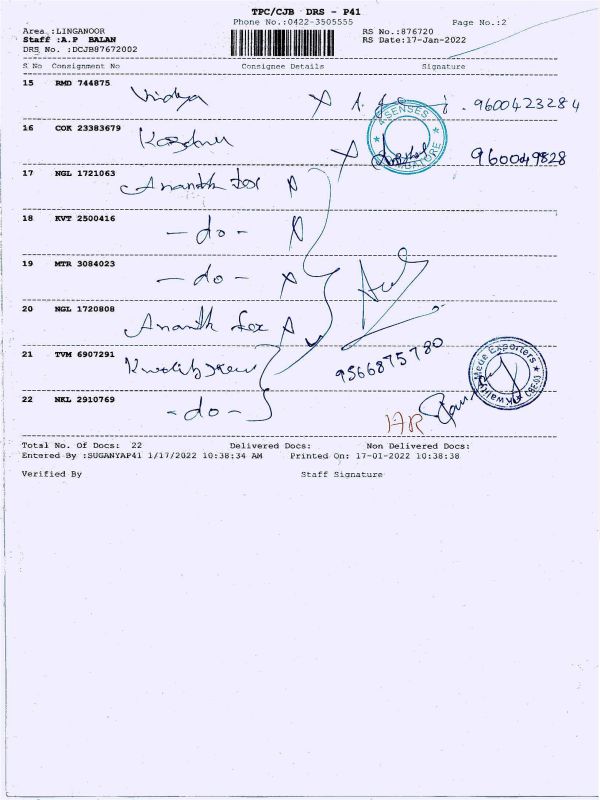 TPC/CJB DRS - P41
Phone No.:0422-3505555
Page No.:2
Area :LINGANOOR
RS No.:876720
Staff :A.P BALAN
RS Date:17-Jan-2022
DRS No. :DCJB87672002
S No Consignment No Consignee Details Signature
15 RMD 744875 Vidya 9600423284
4 SENSES
16 COK 23383679 960049828
17 NGL 1721063 Ananth fex
18 KVT 2500416 -do-
19 MTR 3084023 -do-
20 NGL 1720808 Ananth fex
9566875780
21 TVM 6907291
Mede Exporters
22 NKL 2910769 -do-
Total No. Of Docs: 22 Delivered Docs: Non Delivered Docs:
Entered By :SUGANYAP41 1/17/2022 10:38:34 AM Printed On: 17-01-2022 10:38:38
Verified By Staff Signature